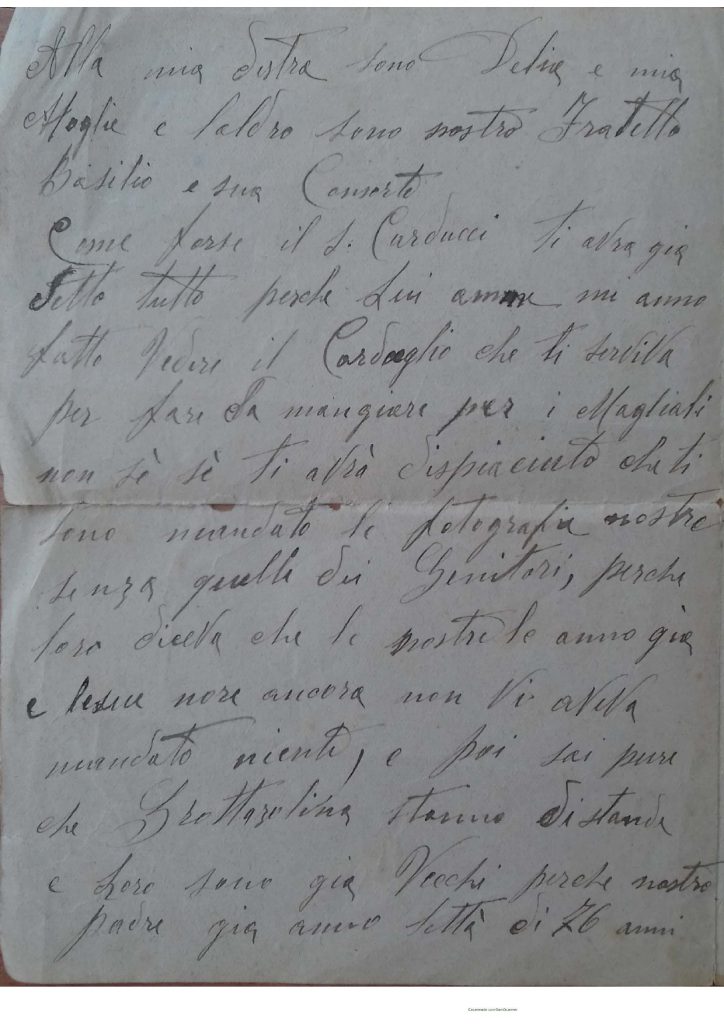 Alla mia destra sono Delia e mia
Moglie e laldro sono nostro Fratello
Basilio e sua Consorte
Come forse il s. Carducci ti avra già
Detto tutto perche Lui anno mi anno
fatto Vedere il Cordoglio che ti serviva
per fare Da mangiare per i Magliali
non sè sè ti avrà dispiaciuto che ti
sono mandato le fotografia nostre
senza quelle dei Genitori, perche
loro diceva che le nostre le anno già
e le sue nore ancora non Vi aveva
mandato niente, e poi sai pure
che Grottazolina stanno distande
e Loro sono già Vecchi perche nostro
padre già anno lettà di 76 anni
Scansionato con CamScanner